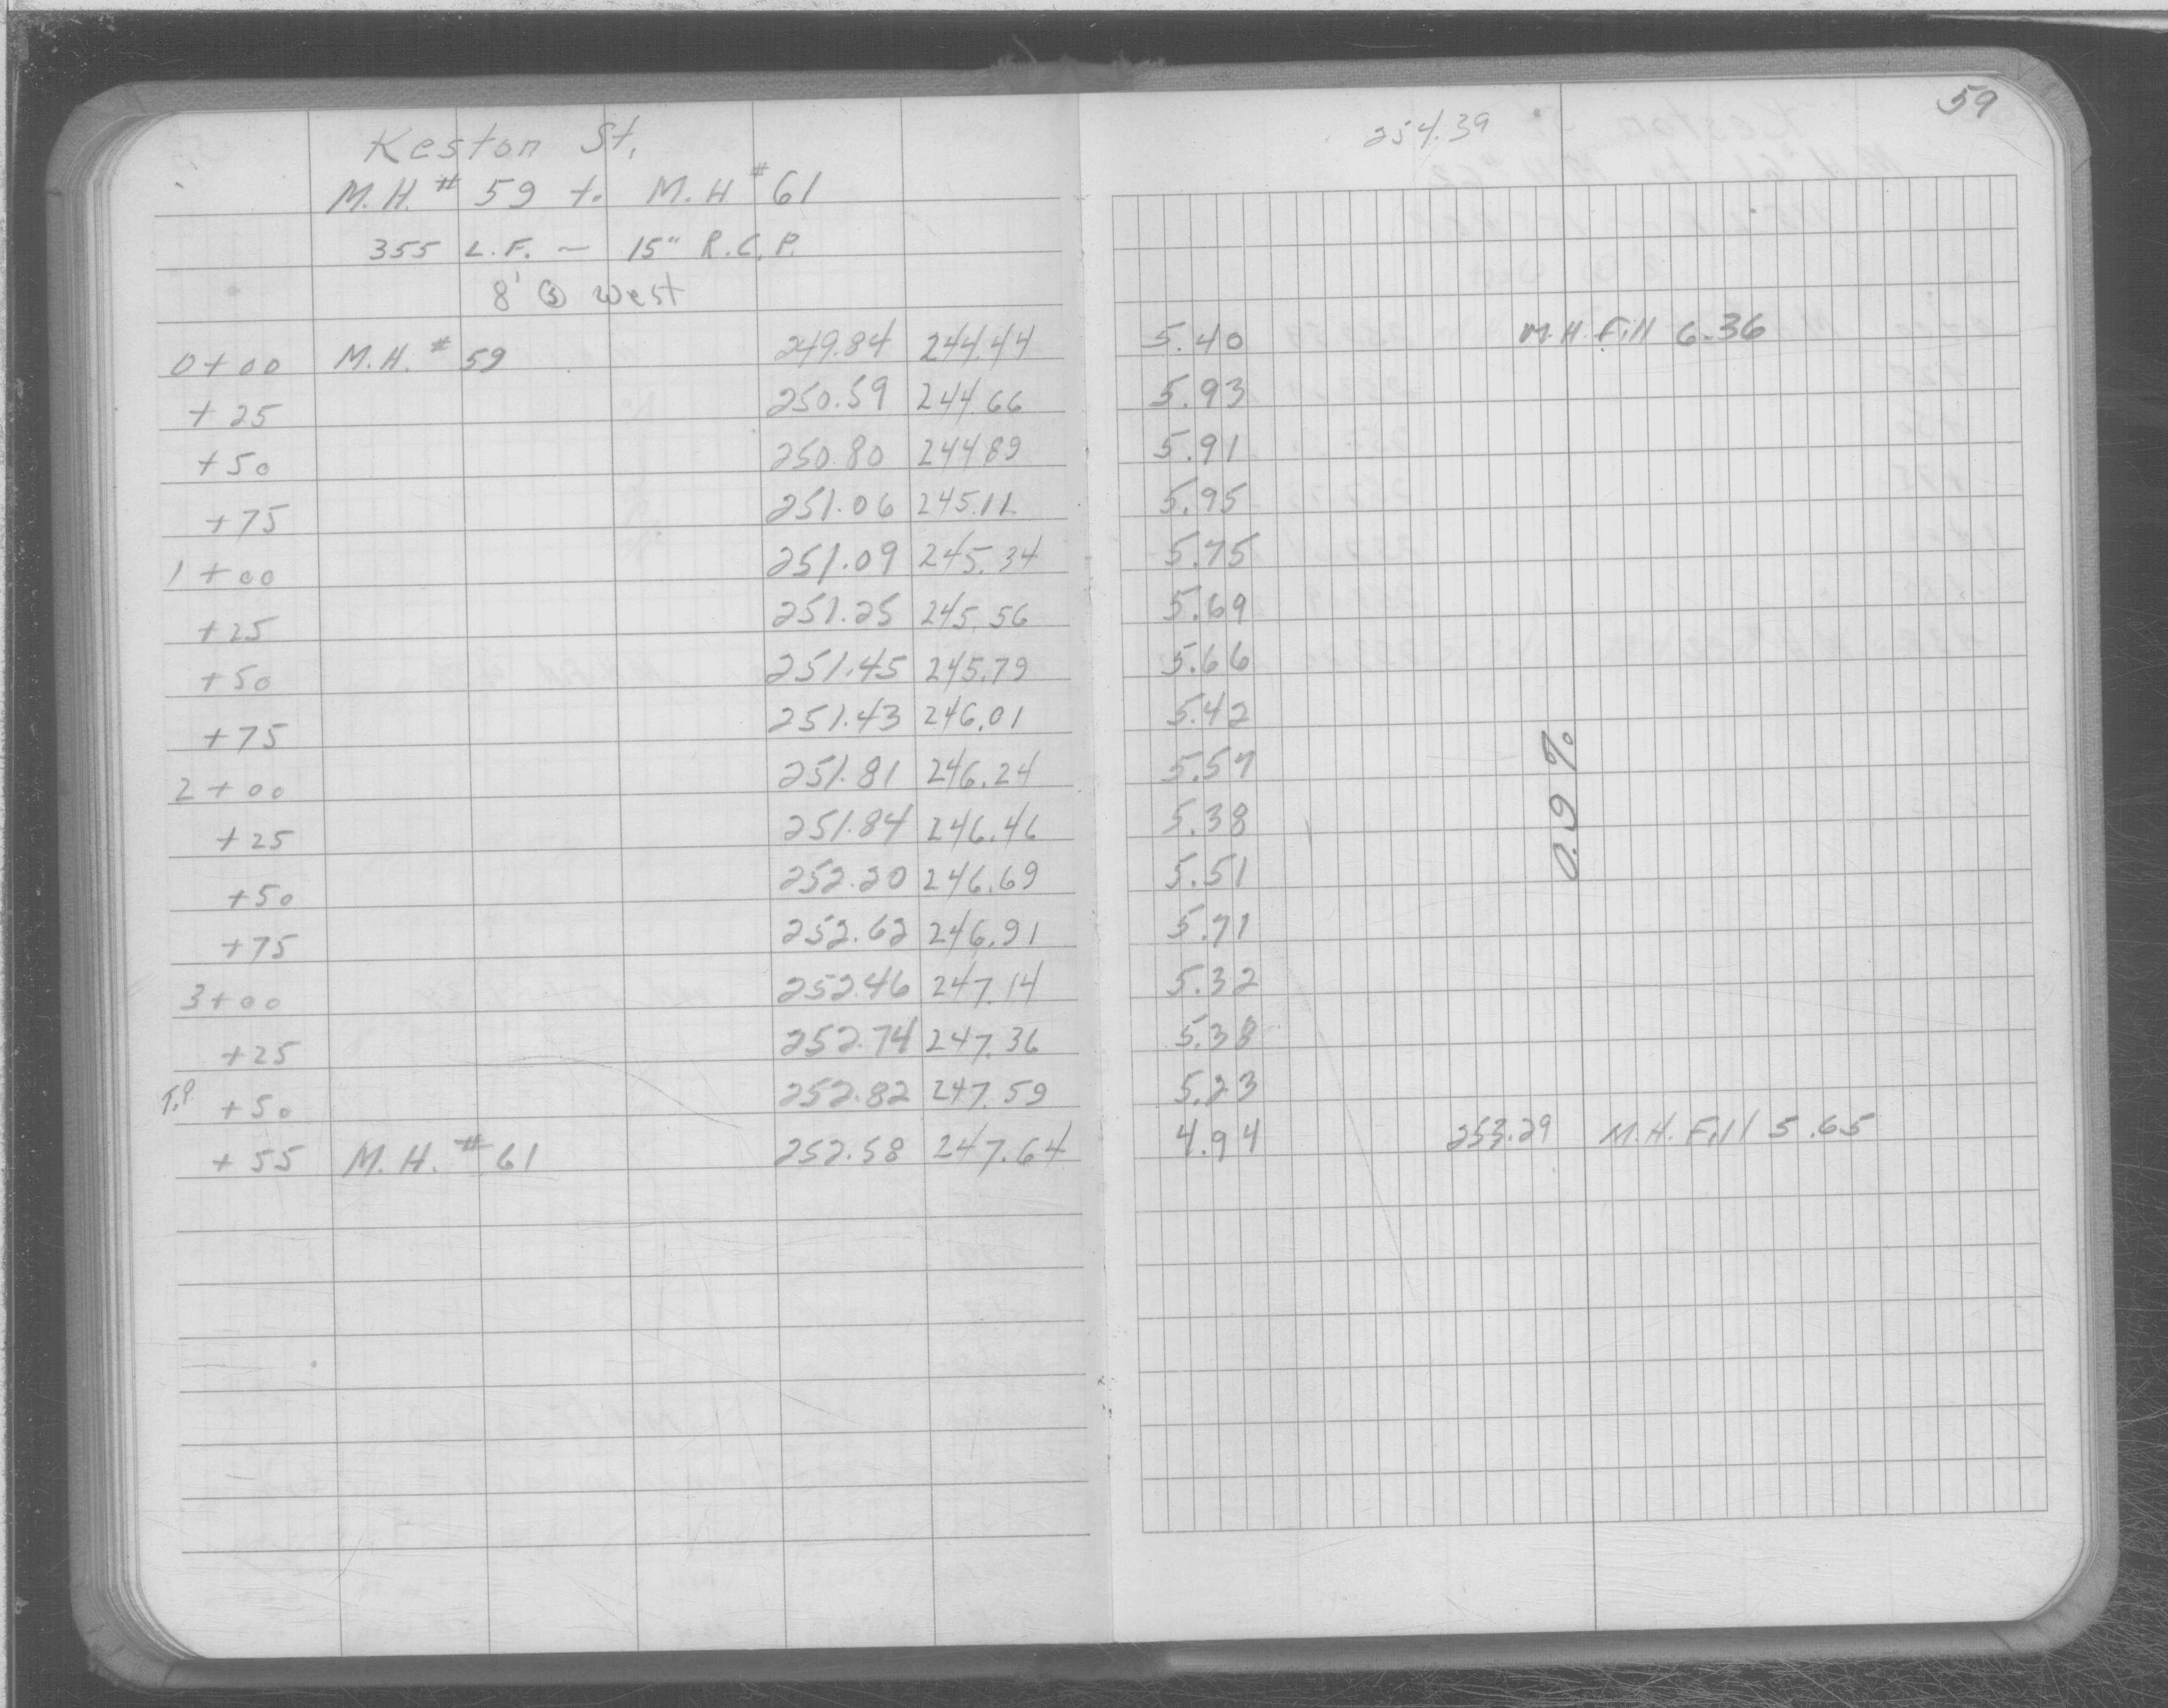 59
254.39
Keston St.
M.H. # 59 to M.H. # 61
355 L.F. ~ 15" R.C.P.
8' @ West
0+00 M.H. # 59 249.84 244.44 5.40 M.H. Fill 6.36
+25 250.59 244.66 5.93
+50 250.80 244.89 5.91
+75 251.06 245.11 5.95
1+00 251.09 245.34 5.75
+25 251.25 245.56 5.69
+50 251.45 245.79 5.66
+75 251.43 246.01 5.42
2+00 251.81 246.24 5.57
+25 251.84 246.46 5.38
+50 252.20 246.69 5.51
+75 252.62 246.91 5.71
3+00 252.46 247.14 5.32
+25 252.74 247.36 5.38
T.P. +50 252.82 247.59 5.23
+55 M.H. # 61 252.58 247.64 4.94 253.29 M.H. Fill 5.65
0.9 %